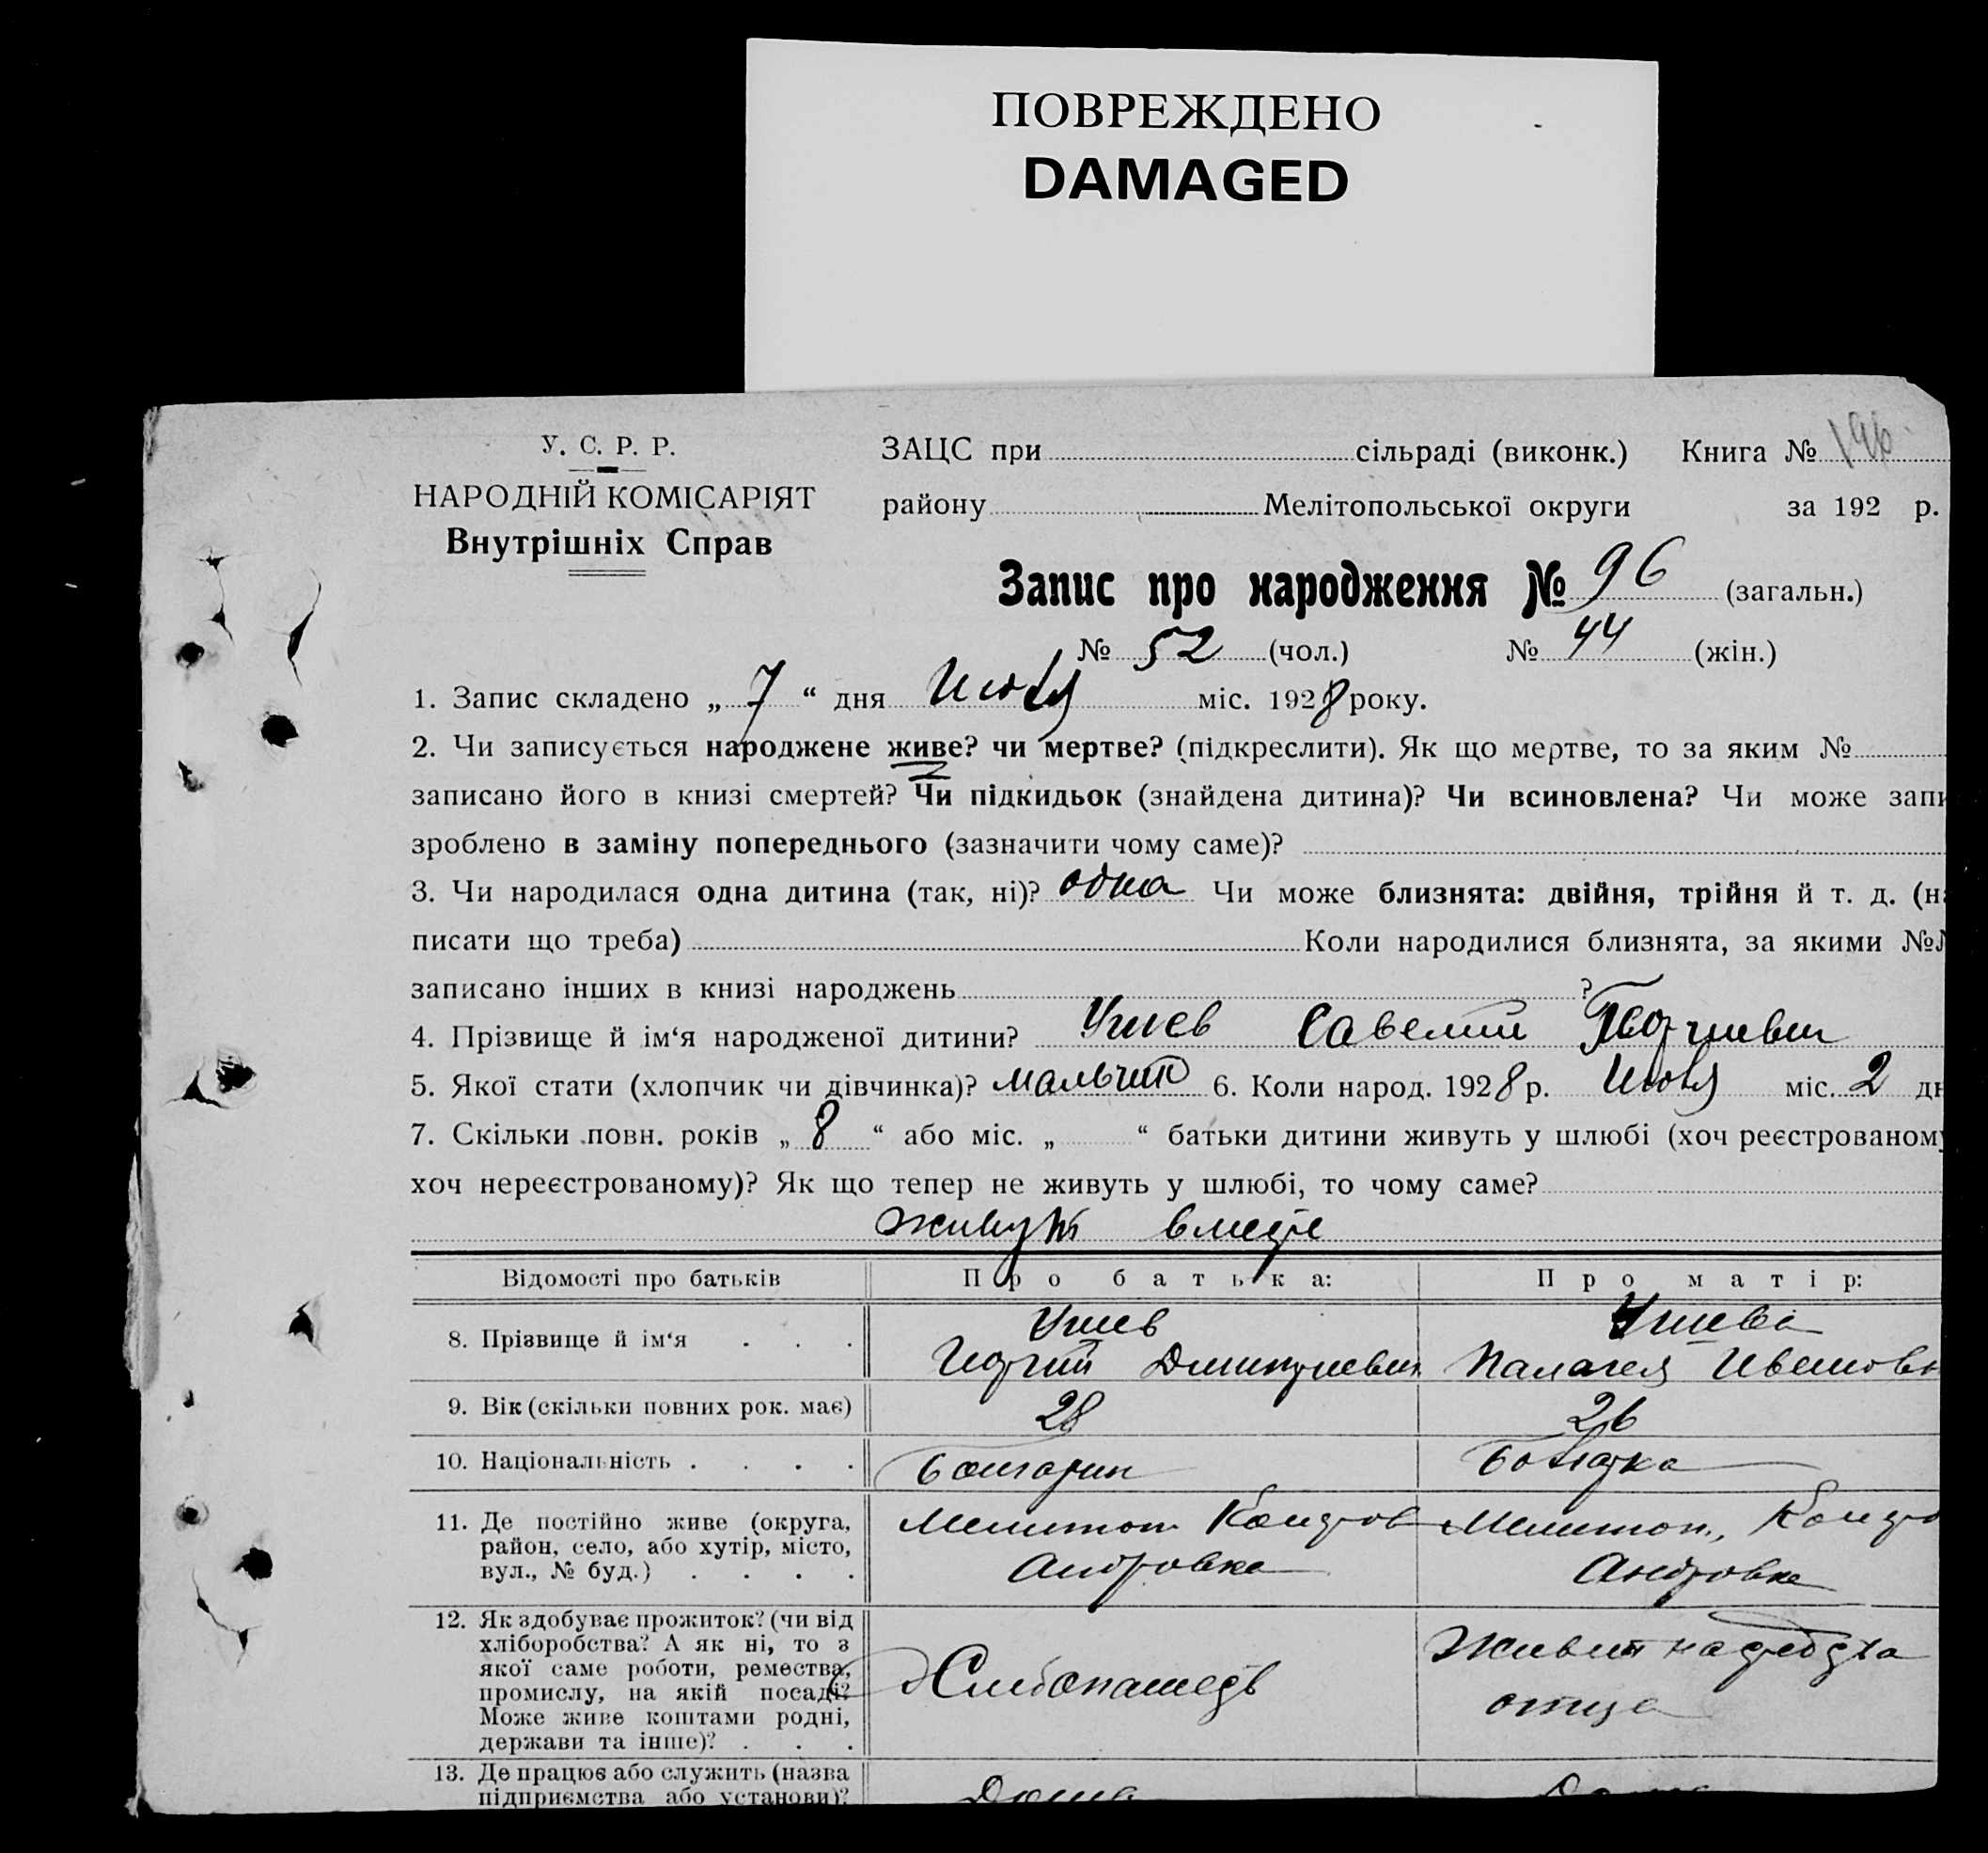 ПОВРЕЖДЕНО
DAMAGED
У. С. Р. Р.
НАРОДНІЙ КОМІСАРІЯТ
Внутрішніх Справ
ЗАЦС при сільраді (виконк.) Книга № 196
району Мелітопольської округи за 192 р.
Запис про народження № 96 (загальн.)
№ 52 (чол.) № 44 (жін.)
1. Запис складено „ 7 “ дня міс. 1928 року.
2. Чи записується народжене живе? чи мертве? (підкреслити). Як що мертве, то за яким №
записано його в книзі смертей? Чи підкидьок (знайдена дитина)? Чи всиновлена? Чи може запи
зроблено в заміну попереднього (зазначити чому саме)?
3. Чи народилася одна дитина (так, ні)? одна Чи може близнята: двійня, трійня й т. д. (на
писати що треба) Коли народилися близнята, за якими №№
записано інших в книзі народжень ?
4. Прізвище й ім‘я народженої дитини? Савелий Георгиевич
5. Якої стати (хлопчик чи дівчинка)? мальчик 6. Коли народ. 1928 р. міс. 2 дн
7. Скільки повн. років „ 8 “ або міс. „ “ батьки дитини живуть у шлюбі (хоч реєстрованому
хоч нереєстрованому)? Як що тепер не живуть у шлюбі, то чому саме?
живут вместе
Відомості про батьків Про батька: Про матір:
8. Прізвище й ім‘я . . .
Георгий Дмитриевич
Палагея Ивановн
9. Вік (скільки повних рок. має) 28 26
10. Національність . . . . Болгарин Болгарка
11. Де постійно живе (округа, район, село, або хутір, місто, вул., № буд.) . . . .
Мелитоп. Андровка
Мелитоп., Андровка
12. Як здобуває прожиток? (чи від хліборобства? А як ні, то з якої саме роботи, ремества, промислу, на якій посаді? Може живе коштами родні, держави та інше)? . . .
Хлибопашець
Живет на средства
отца
13. Де працює або служить (назва Дома Дома
підприємства або установи)?